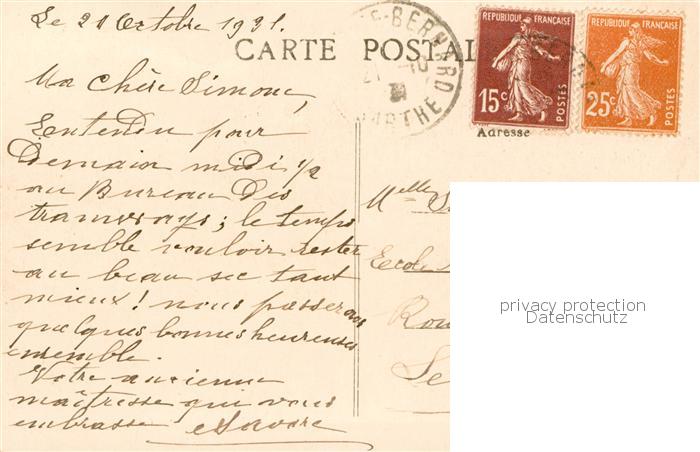 Le 21 Octobre 1931.
CARTE POSTAL
RÉPUBLIQUE FRANÇAISE
15c
POSTES
RÉPUBLIQUE FRANÇAISE
25c
POSTES
E-BERNARD
21 -10
31
SARTHE
Adresse
Ma chère Simone,
Entendu pour
Demain midi 1/2
au Bureau des
tramways; le temps
semble vouloir rester
au beau sec tant
mieux! nous passerons
quelques bonnes heureuses
ensemble.
Votre ancienne
maîtresse qui vous
embrasse
Melle
Ecole
Rou
Le
privacy protection
Datenschutz